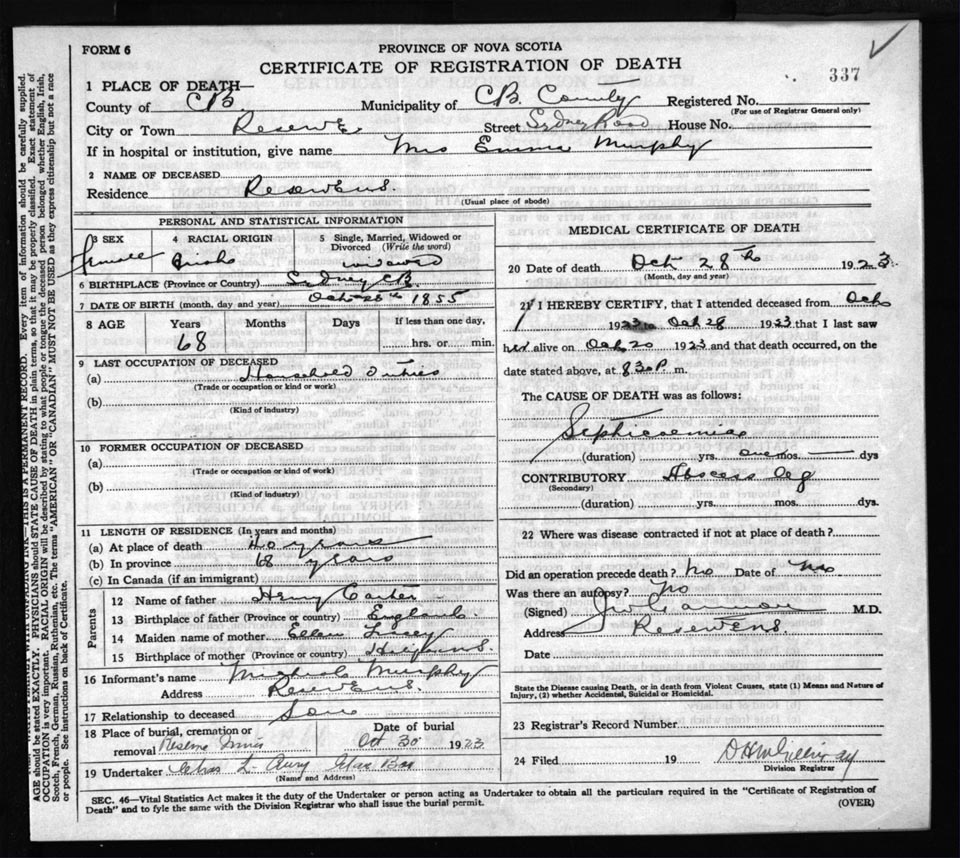 FORM 6
PROVINCE OF NOVA SCOTIA
CERTIFICATE OF REGISTRATION OF DEATH
337
1 PLACE OF DEATH—
County of CB. Municipality of CB. County Registered No.
(For use of Registrar General only)
City or Town Reserve Street Sydney Road House No.
If in hospital or institution, give name Mrs Emma Murphy
2 NAME OF DECEASED
Residence Reserve
(Usual place of abode)
PERSONAL AND STATISTICAL INFORMATION
3 SEX 4 RACIAL ORIGIN 5 Single, Married, Widowed or Divorced (Write the word)
female Irish widowed
6 BIRTHPLACE (Province or Country) Sydney CB.
7 DATE OF BIRTH (month, day and year) Oct 1855
8 AGE Years Months Days If less than one day,
68 hrs. or min.
9 LAST OCCUPATION OF DECEASED
(a) Household Duties
(Trade or occupation or kind of work)
(b)
(Kind of industry)
10 FORMER OCCUPATION OF DECEASED
(a)
(Trade or occupation or kind of work)
(b)
(Kind of industry)
11 LENGTH OF RESIDENCE (In years and months)
(a) At place of death 40 years
(b) In province 68 years
(c) In Canada (if an immigrant)
Parents
12 Name of father Henry Carter
13 Birthplace of father (Province or country) England
14 Maiden name of mother Ellen
15 Birthplace of mother (Province or country)
16 Informant's name Michael Murphy
Address Reserve
17 Relationship to deceased Son
18 Place of burial, cremation or removal Reserve Mines Date of burial Oct 30 1923
19 Undertaker Chas L. Curry Glace Bay
(Name and Address)
MEDICAL CERTIFICATE OF DEATH
20 Date of death Oct 28th 1923.
(Month, day and year)
21 I HEREBY CERTIFY, that I attended deceased from Oct
1923 to Oct 28 1923 that I last saw
her alive on Oct 20 1923 and that death occurred, on the
date stated above, at 830 P. m.
The CAUSE OF DEATH was as follows:
Septicaemia
(duration) yrs. one mos. — dys
CONTRIBUTORY Abscess leg
(Secondary)
(duration) yrs. mos. dys.
22 Where was disease contracted if not at place of death?
Did an operation precede death? No Date of No
Was there an autopsy? No
(Signed) M.D.
Address Reserve
Date
State the Disease causing Death, or in death from Violent Causes, state (1) Means and Nature of Injury, (2) whether Accidental, Suicidal or Homicidal.
23 Registrar's Record Number
24 Filed 19
Division Registrar
SEC. 46—Vital Statistics Act makes it the duty of the Undertaker or person acting as Undertaker to obtain all the particulars required in the "Certificate of Registration of
Death" and to fyle the same with the Division Registrar who shall issue the burial permit.
(OVER)
THIS IS A PERMANENT RECORD. Every item of information should be carefully supplied.
AGE should be stated EXACTLY. PHYSICIANS should STATE CAUSE OF DEATH in plain terms, so that it may be properly classified. Exact statement of
OCCUPATION is very important. RACIAL ORIGIN will be described by stating to what people or tongue the deceased person belonged whether English, Irish,
Scotch, French, German, Russian, Ruthenian, etc. The terms "AMERICAN" OR "CANADIAN" MUST NOT BE USED as they express citizenship but not a race
or people. See instructions on back of Certificate.